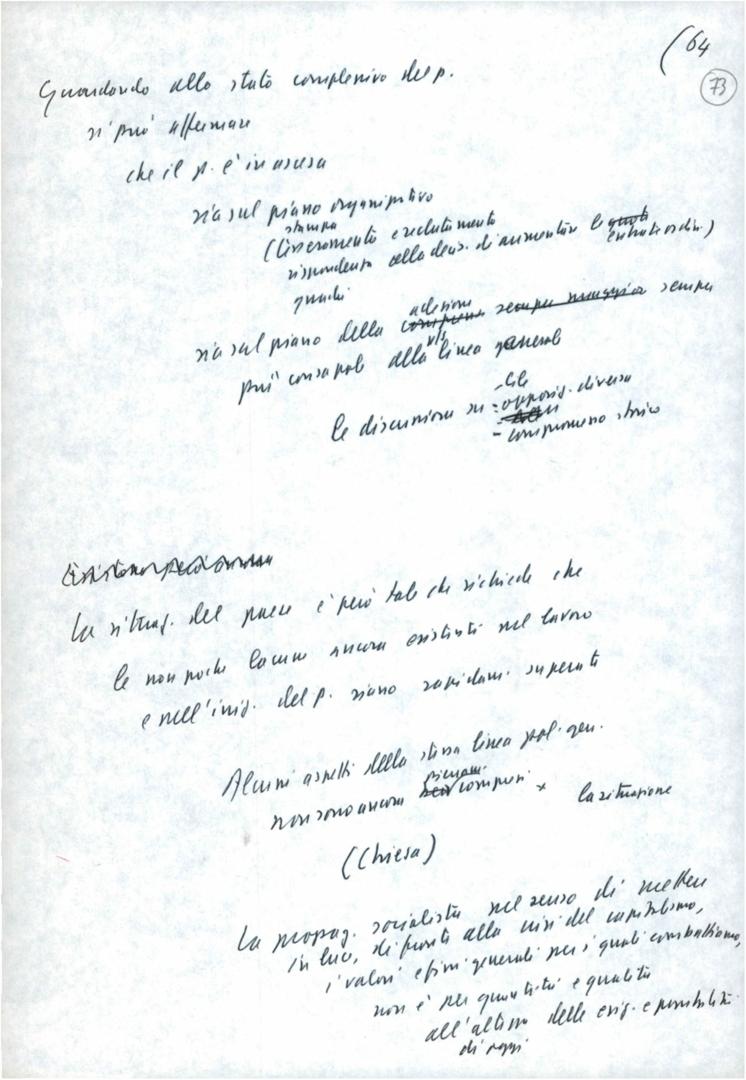 (64
73
Guardando allo stato complessivo del p.
si può affermare
che il p. è in ascesa
sia sul piano organizzativo
stampa
(tesseramento e reclutamento
rispondenza alla decis. di aumentare le quote entrate ordin.)
quadri
adesione
sia sul piano della compren sempre maggior sempre
più consapevole alla linea generale
le discussioni su - Cile
- opposiz. diversa
- compromesso storico
La situaz. del paese è però tale che richiede che
le non poche lacune ancora esistenti nel lavoro
e nell'iniz. del p. siano rapidam. superate
Alcuni aspetti della stessa linea pol. gen.
pienam.
non sono ancora compresi x la situazione
(Chiesa)
La propag. socialista nel senso di mettere
in luce, di fronte alla crisi del capitalismo,
i valori e fini generali per i quali combattiamo,
non è per quantità e qualità
all'altezza delle esig. e possibilità
di oggi